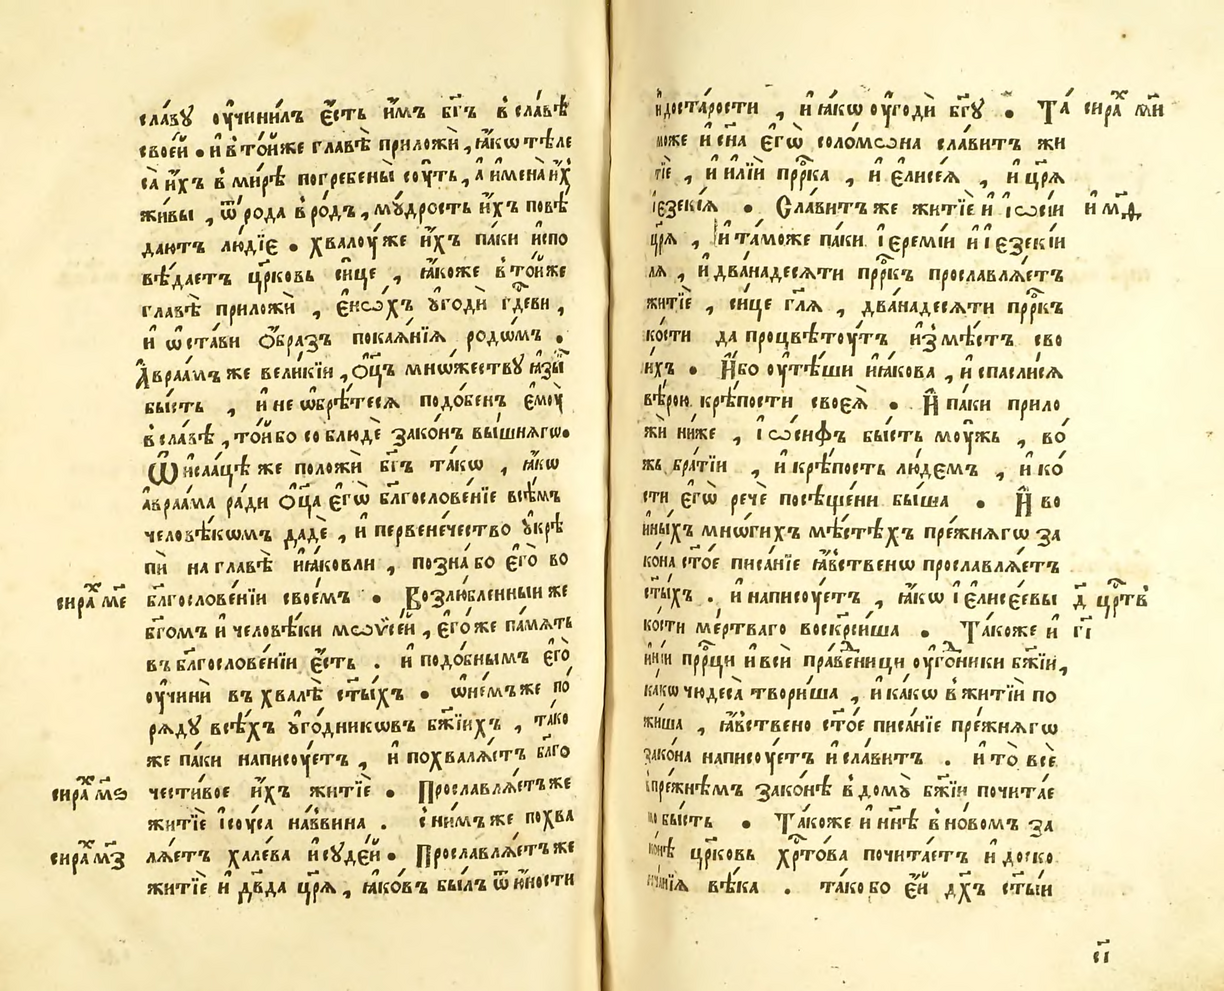 сла́вꙋ оу҆чини́лъ є҆́сть и҆̀мъ бг҃ъ в̾сла́вѣ
свое́й • и҆ в̾то́йже главѣ̀ приложѝ, ꙗ҆́кѡ тѣле
са̀ и҆́хъ в̾ми́рѣ погребены̀ соу́ть, а҆ и҆мена̀ и҆́хъ
живы̀, ѿ рода в̾ро́дъ, мꙋ́дрость и҆́хъ повѣ́
даютъ лю́дїе • хвалоу́ же и҆́хъ паки и҆спо
вѣ́даетъ цр҃ковь си́це, ꙗ҆́коже в̾то́йже
главѣ̀ приложѝ, є҆нѡ́хъ ᲂугодѝ гд҇еви,
и҆ ѡ҆ста́ви ѻ҆́бразъ покаѧ́нїѧ родѡ́мъ.
А҆враа́мъ же вели́кїи, ѻ҆ц҃ъ мнѡ́жествꙋ ꙗ҆зы҇
бы́сть, и҆ не ѡ҆брѣ́тесѧ подо́бенъ є҆моу̀
в̾сла́вѣ, то́й бо соблюдѐ зако́нъ вы́шнѧгѡ.
Ѿ и҆саа́цѣ же положѝ бг҃ъ та́кѡ, ꙗ҆́кѡ
а҆враа́ма ра́ди ѻ҆ц҃а є҆гѡ̀ блг҃ослове́нїе всѣ́мъ
человѣ́кѡмъ дадѐ, и҆ первене́чество ᲂукрѣ
пѝ на главѣ̀ и҆ꙗ́ковли, позна̀ бо є҆го̀ во
сира́х ме҃ блг҃ослове́нїи свое́мъ • Возлю́бленныи же
бг҃омъ и҆ человѣ́ки мѡѷсе́й, є҆го́же па́мѧть
въ блг҃ослове́нїи є҆́сть. и҆ подо́бнымъ є҆го̀
оу҆чинѝ въ хвалѣ̀ ст҃ы́хъ • ѡ҆ не́мъ же по́
рѧдꙋ всѣ́хъ ᲂуго́дникѡвъ бж҃їихъ, та́ко
же паки написоу́етъ, и҆ похвалѧ́етъ бл҃го
сира́х мѕ҃ чести́вое и҆́хъ житїѐ • Прославлѧ́етъ же
житїѐ і҆соу́са на́ввина. с̾ни́мъ же похва
сира́х мз҃ лѧ́етъ хале́ва и҆ сꙋде́й • Прославлѧ́етъ же
житїѐ и҆ дв҃да цр҃ѧ, ꙗ҆ко́въ бы́лъ ѿ ю҆́ности
и҆ до ста́рости, и҆ ꙗ҆́кѡ оу҆годѝ бг҃ꙋ • Та́ сира́х м҃и
може и҆ сн҃а є҆гѡ̀ соломѡ́на сла́витъ жи
тїѐ, и҆ илїѝ прр҇ка, и҆ є҆лисе́ѧ, и҆ цр҃ѧ
і҆езекі́ѧ • Сла́витъ же житїѐ и҆ і҆ѡсі́и и҆ м҃ѳ
цр҃ѧ, и҆ та́може паки і҆еремі́и и҆ і҆езекі́и
лѧ, и҆ двана́десѧти прр҇къ прославлѧ́етъ
житїѐ, си́це гл҃ѧ, двана́десѧти прр҇къ
ко́сти да процвѣтоу́тъ и҆з̾ мѣ́стъ сво
и́хъ • И҆́бо оу҆тѣ́ши и҆ꙗ́кова, и҆ спасли́сѧ
вѣ́рою крѣ́пости своеѧ̀ • И҆ паки прило
жѝ ни́же, і҆ѡ́сифъ бы́сть моу́жь, во́
жь бра́тїи, и҆ крѣ́пость лю́демъ, и҆ ко́
сти є҆гѡ̀ речѐ посѣщени бы́ша • И҆ во
и҆́ныхъ мнѡ́гихъ мѣ́стѣхъ пре́жнѧгѡ за
ко́на ст҃о́е писа́нїе ꙗ҆́вственѡ прославлѧ́етъ
ст҃ы́хъ. и҆ написоу́етъ, ꙗ҆́кѡ і҆ елисе́евы д҃ цр҇тв
ко́сти ме́ртваго воскреси́ша • Та́коже и҆ г҃і
и҆ні́и прр҇цы и҆ всѝ пра́веницы оу҆го́дники бж҃їи,
ка́кѡ чюдеса̀ твори́ша, и҆ ка́кѡ в̾житїѝ по
жи́ша, ꙗ҆́вствено ст҃о́е писа́нїе пре́жнѧгѡ
зако́на написоу́етъ и҆ сла́витъ. и҆ то̀ всѐ
в̾пре́жнѣмъ зако́нѣ в̾домꙋ̀ бж҃їи почита́е
мо бы́сть • Та́коже и҆ нн҃ѣ в̾но́вомъ за
ко́нѣ цр҃ковь хр҇то́ва почита́етъ и҆ до ско
нча́нїѧ вѣ́ка. та́ко бо є҆́й дх҃ъ ст҃ы́и
є҃і